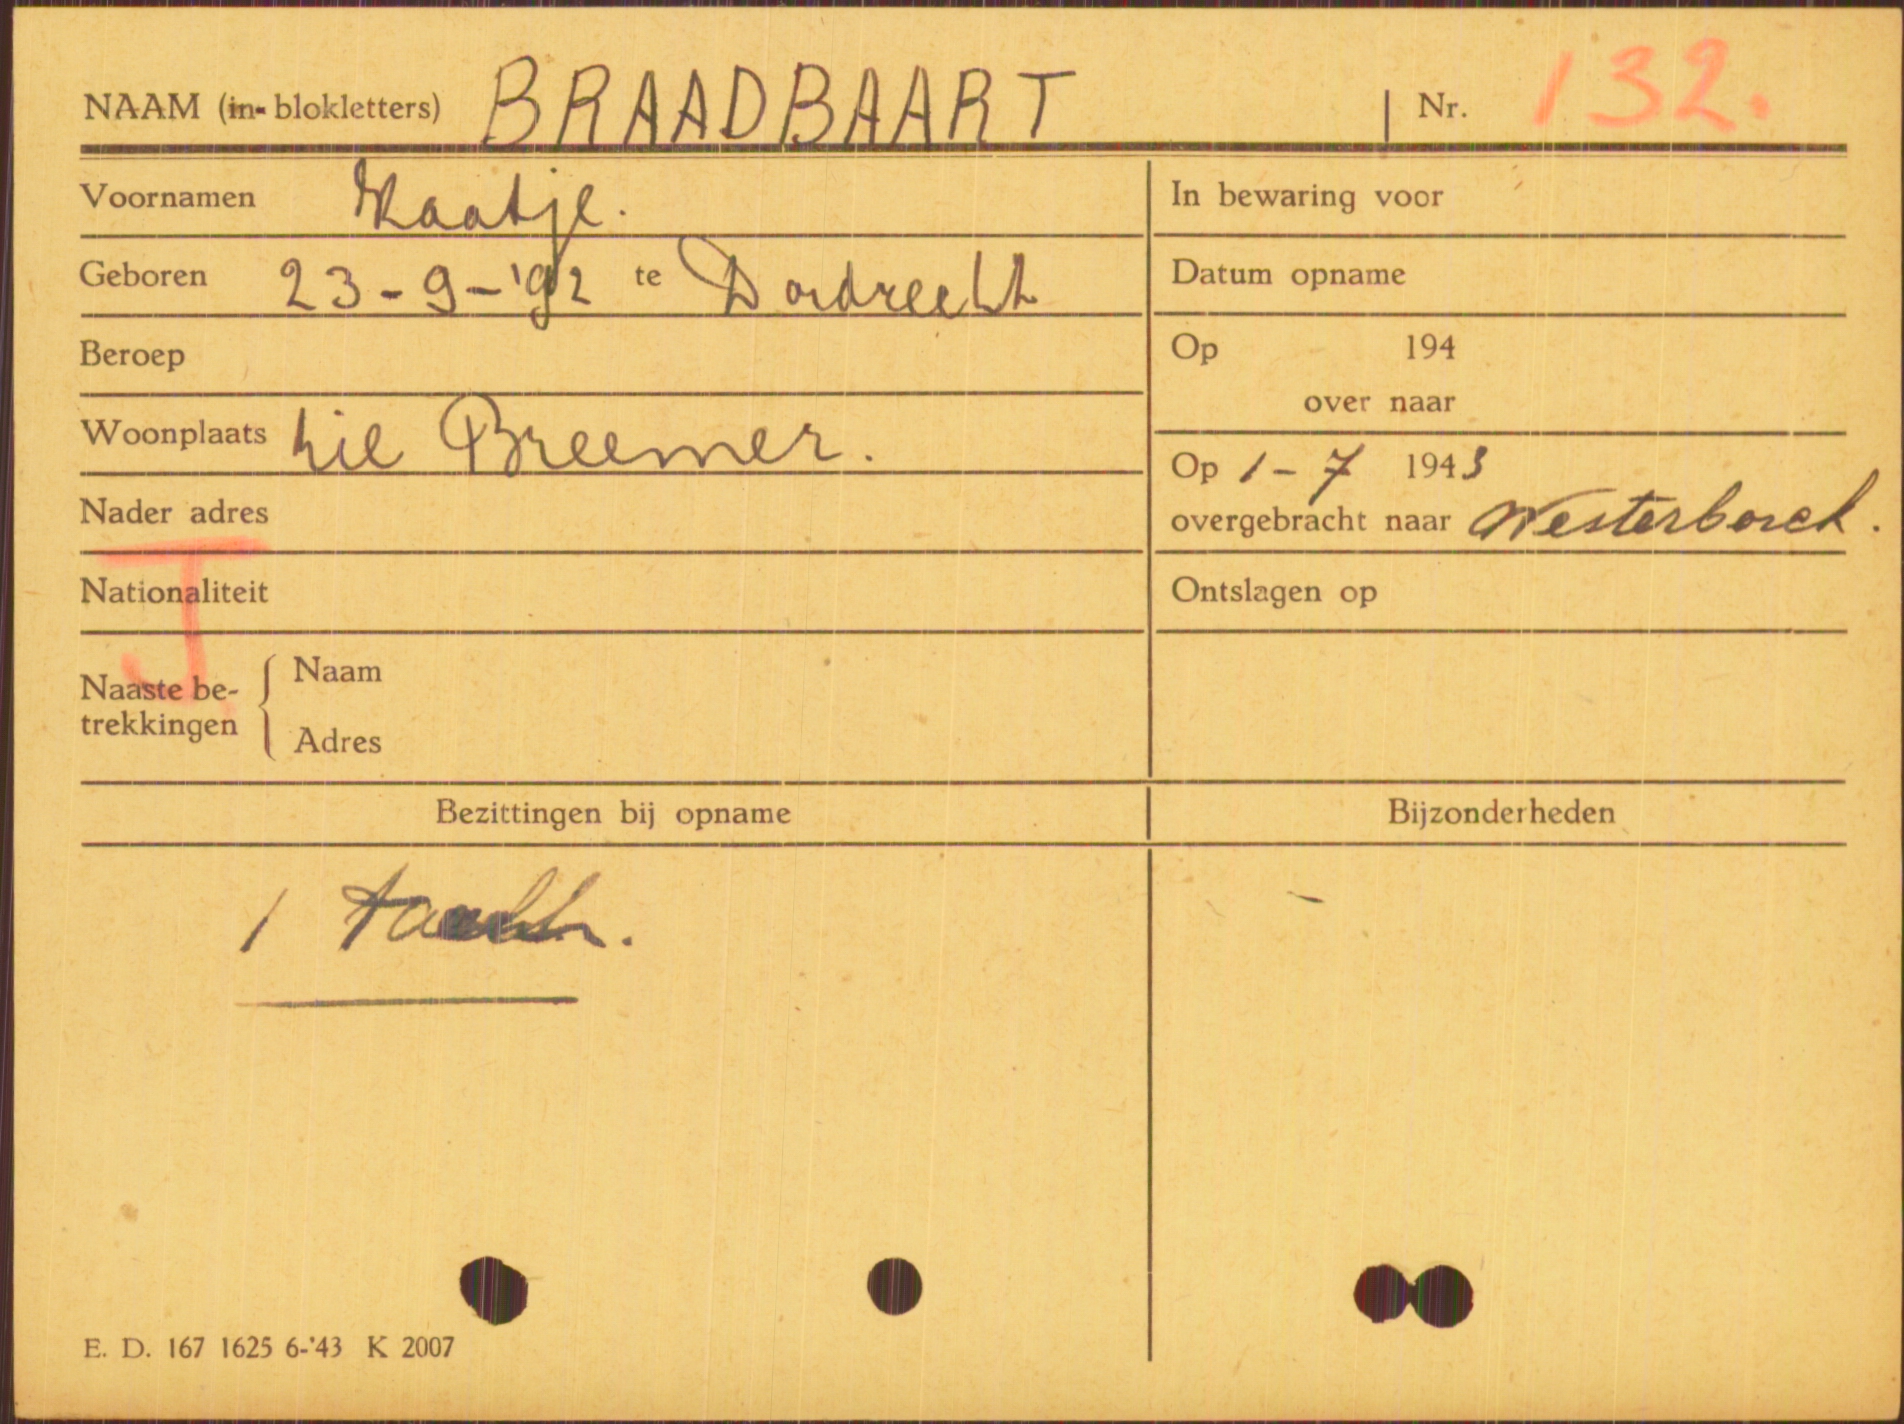 NAAM (in blokletters) BRAADBAART
Nr. 132.
Voornamen Kaatje.
Geboren 23-9-'92 te Dordrecht
Beroep
Woonplaats zie Breemer.
Nader adres
Nationaliteit
J
Naaste be-
trekkingen
Naam
Adres
In bewaring voor
Datum opname
Op 194
over naar
Op 1-7 1943
overgebracht naar Westerborck.
Ontslagen op
Bezittingen bij opname
Bijzonderheden
1
E. D. 167 1625 6-'43 K 2007